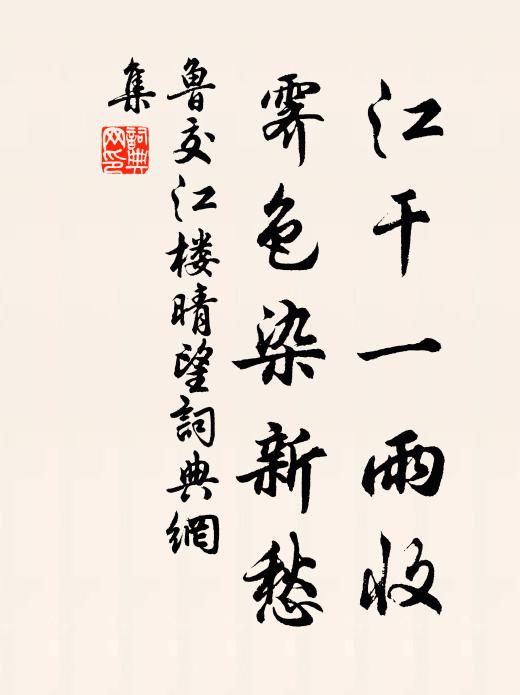 江干一雨收
霁色染新愁
鲁交江楼晴望詞典網
集
詞典
网印